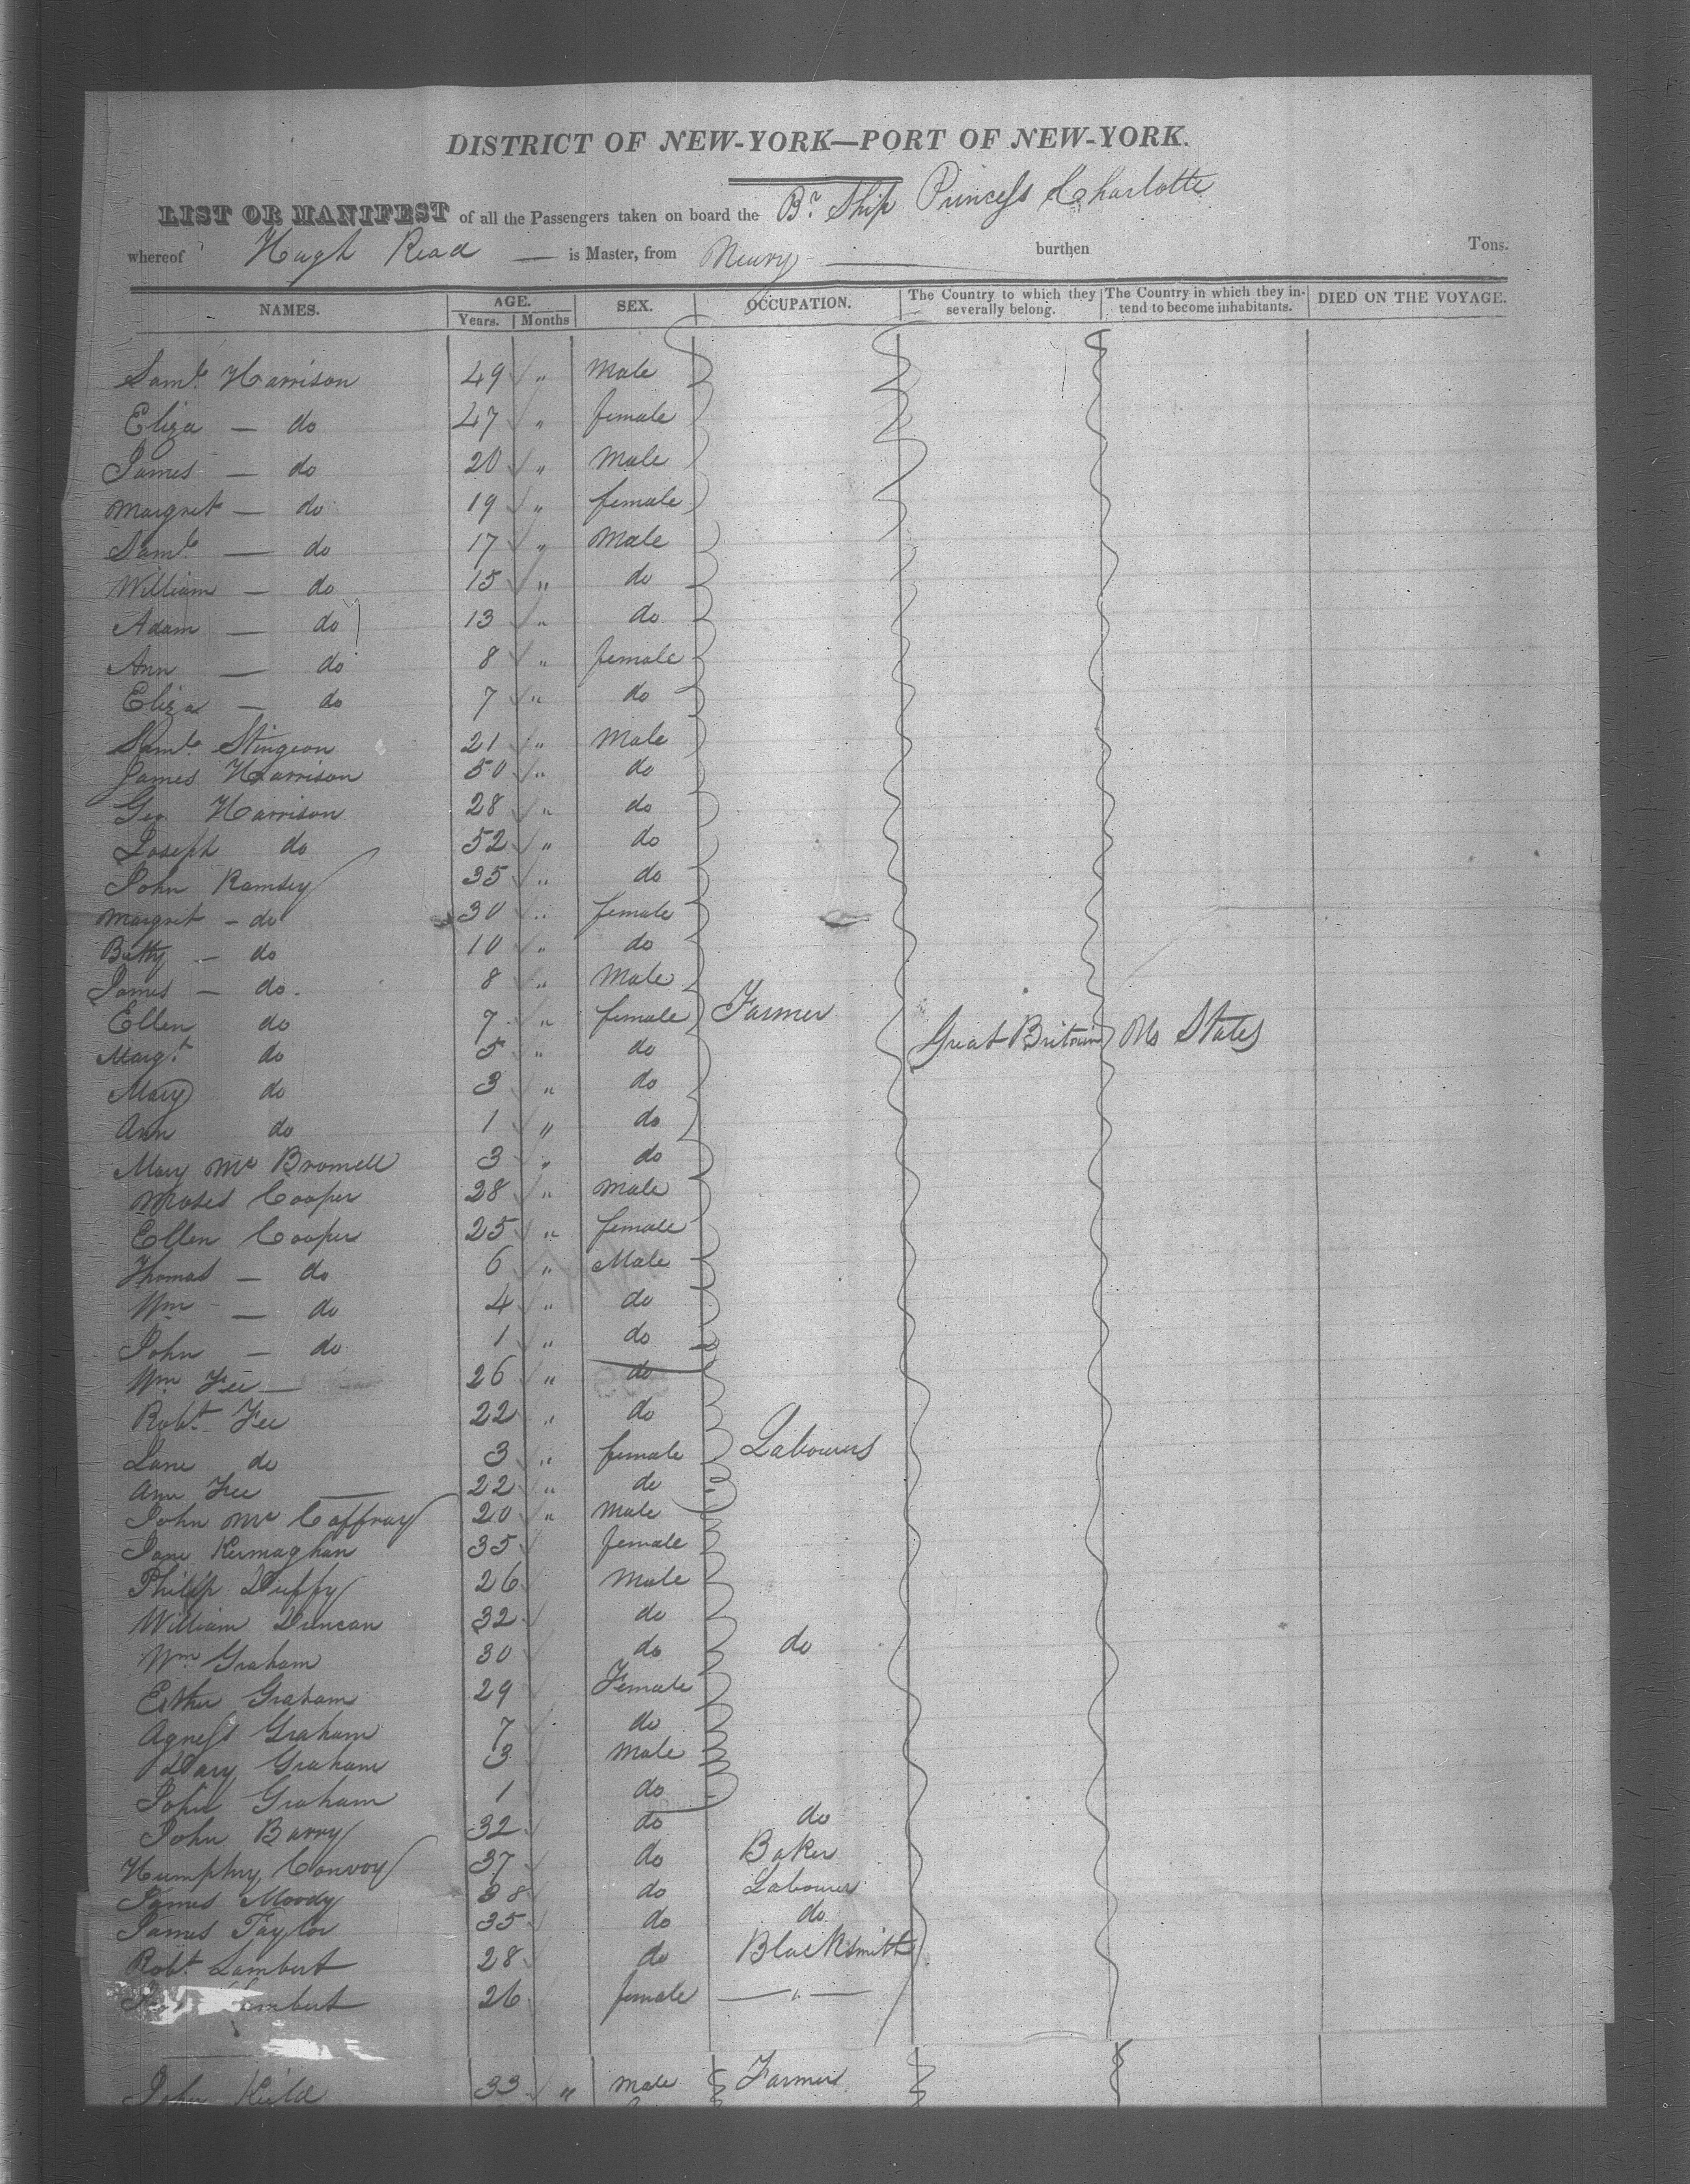 DISTRICT OF NEW-YORK—PORT OF NEW-YORK.
LIST OR MANIFEST of all the Passengers taken on board the Br Ship Princess Charlotte
whereof Hugh Read — is Master, from Newry — burthen Tons.
NAMES. AGE. Years. Months SEX. OCCUPATION. The Country to which they severally belong. The Country in which they intend to become inhabitants. DIED ON THE VOYAGE.
Saml. Harrison 49 " Male
Eliza — do 47 " female
James — do 20 " Male
Margret — do 19 " female
Saml — do 17 " Male
William — do 15 " do
Adam — do 13 " do
Ann — do 8 " female
Eliza — do 7 " do
Saml. Stingeon 21 " Male
James Harrison 50 " do
Geo Harrison 28 " do
Joseph do 52 " do
John Ramsey 35 " do
Margret - do 30 " female
Betty — do 10 " do
James — do. 8 " Male
Ellen do 7 " female Farmer
Margt do 5 " do Great Britain Un States
Mary do 3 " do
Ann do 1 " do
Mary Mc Bromell 3 " do
Moses Cooper 28 " Male
Ellen Cooper 25 " female
Thomas — do 6 " Male
Wm — do 4 " do
John — do 1 " do
Wm Fee — 26 " do
Robt Fee 22 " do
Jane do 3 " female Labourers
Ann Fee 22 " do
John Mc Caffray 20 " Male
Jane Kernaghan 35 female
Philip Duffy 26 Male
William Duncan 32 do
Wm Graham 30 do do
Esther Graham 29 Female
Agness Graham 7 do
Mary Graham 3 Male
John Graham 1 do
John Barry 32 do do
Humphry Convoy 37 do Baker
James Moody 38 do Labourer
James Taylor 35 do do
Robt Lambert 28 do Blacksmith
Lambert 26 female — " —
John 33 " Male Farmer